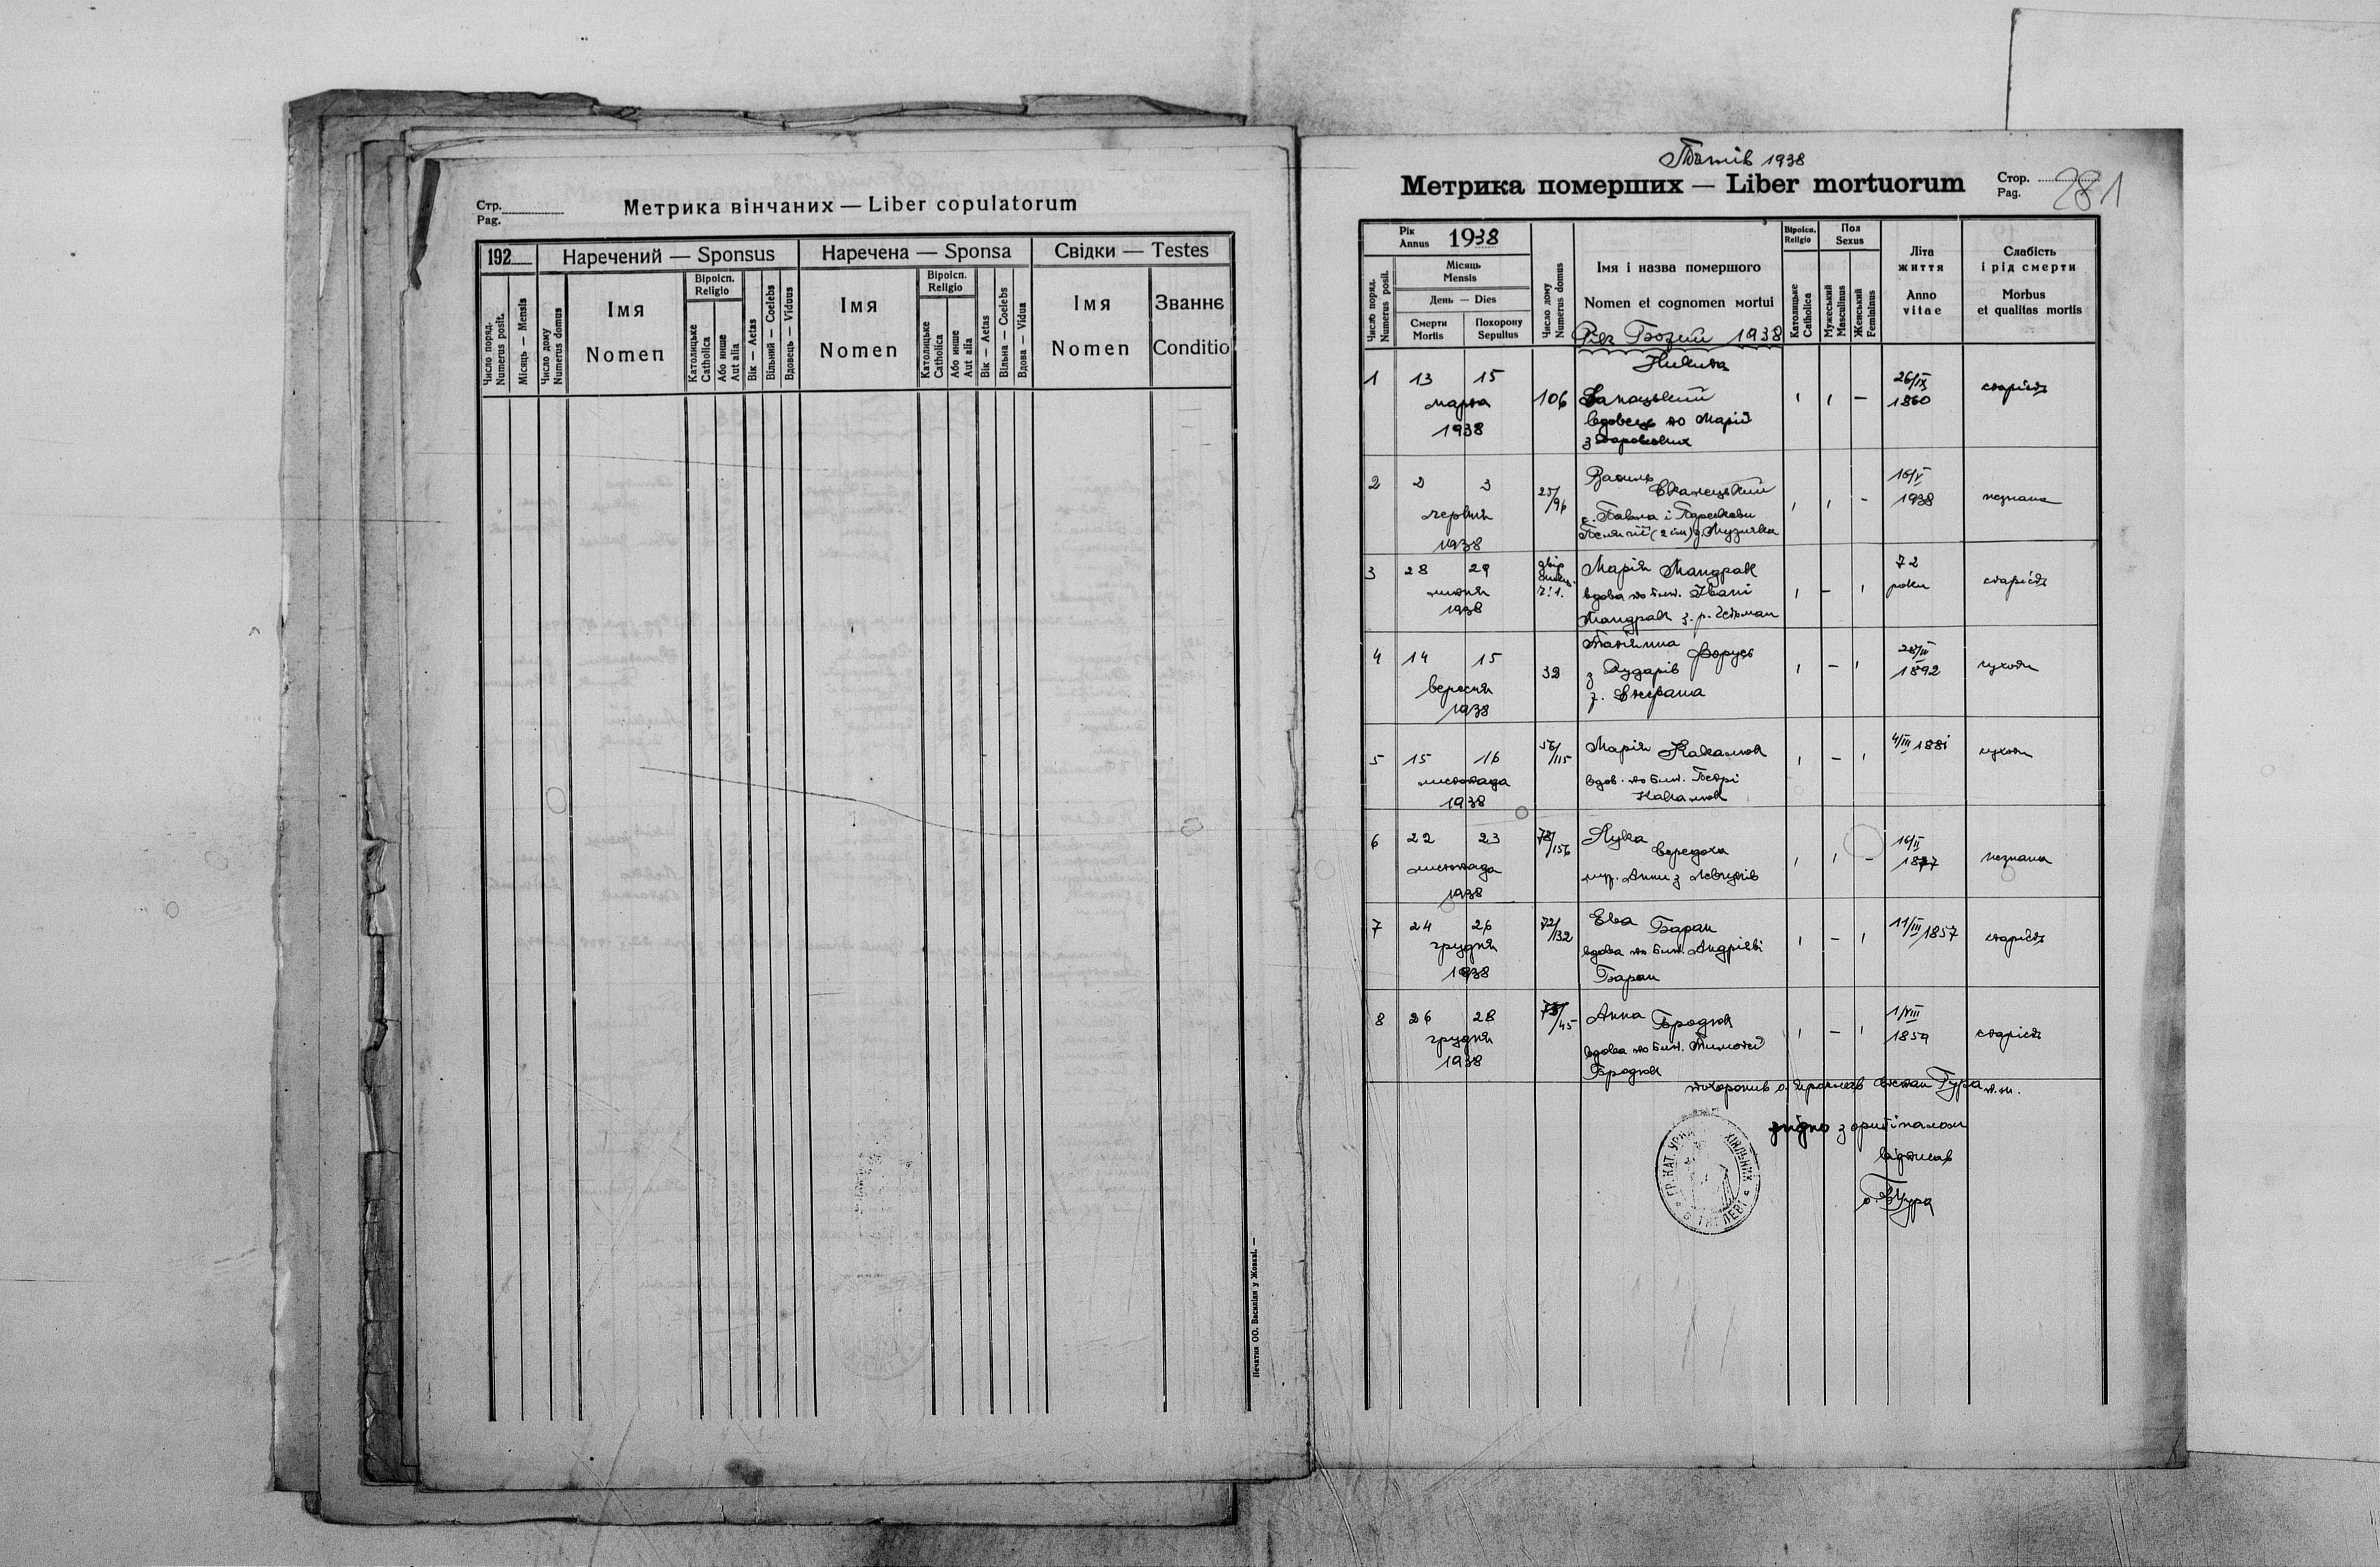 Стр.
Pag.
Метрика вінчаних — Liber copulatorum
192
Наречений — Sponsus
Наречена — Sponsa
Свідки — Testes
Число поряд.
Numerus posit.
Місяць — Mensis
Число дому
Numerus domus
Імя
Nomen
Віроісп.
Religio
Католицьке
Catholica
Або инше
Aut alia
Вік — Aetas
Вільний — Coelebs
Вдовець — Viduus
Імя
Nomen
Віроісп.
Religio
Католицьке
Catholica
Або инше
Aut alia
Вік — Aetas
Вільна — Coelebs
Вдова — Vidua
Імя
Nomen
Званнє
Conditio
Печатня ОО. Василіян у Жовкві. —
1938
Метрика померших — Liber mortuorum
Стор.
Pag.
281
Рік
Annus
1938
Число поряд.
Numerus posit.
Місяць
Mensis
День — Dies
Смерти
Mortis
Похорону
Sepultus
Число дому
Numerus domus
Імя і назва помершого
Nomen et cognomen мortui
Рік Божий 1938
Віроісп.
Religio
Католицьке
Catholica
Пол
Sexus
Мужеський
Masculinus
Женський
Femininus
Літа
життя
Anno
vitae
Слабість
і рід смерти
Morbus
et qualitas mortis
1 13 15
марта
1938
106
Никита
вдовець по Марії
26/IX
1860
старість
2 2 3
червня
1938
25/96
Василь
с. Павла і Параскеви
16/V
1938
незнана
3 28 29
1938
двір
ч. 1.
Марія Мандрак
вдова по бл. п. Івані
Мандрак з р. Гетьман
72
роки
старість
4 14 15
вересня
1938
32
Форусь
з Дударів
28/III
1892
сухоти
5 15 16
листопада
1938
56/115
Марія
вдов. по бл. п. Петрі
4/III 1881
сухоти
6 22 23
листопада
1938
78/156
Лука
муж. Анни з
16/II
1877
незнана
7 24 26
грудня
1938
72/132
Ева Баран
вдова по бл. п. Андрієві
Баран
11/III 1857
старість
8 26 28
грудня
1938
/45
Анна Бродюк
вдова по бл. п. Тимотей
Бродюк
1/VIII
1859
старість
похоронив о. Ярослав Гура
згідно з оригіналом
відписав
о. Гура
ГР. КАТ. УРЯД